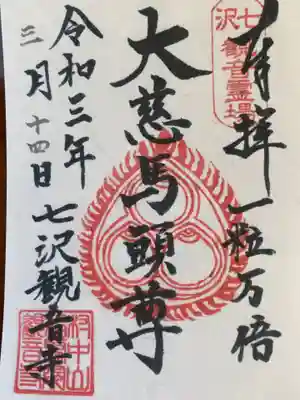 七沢
観音霊場
奉拝 一粒万倍
大慈馬頭尊
令和三年
三月十四日 七沢観音寺